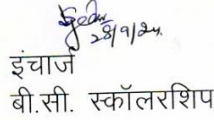 28/9/24.
इंचार्ज
बी.सी. स्कॉलरशिप